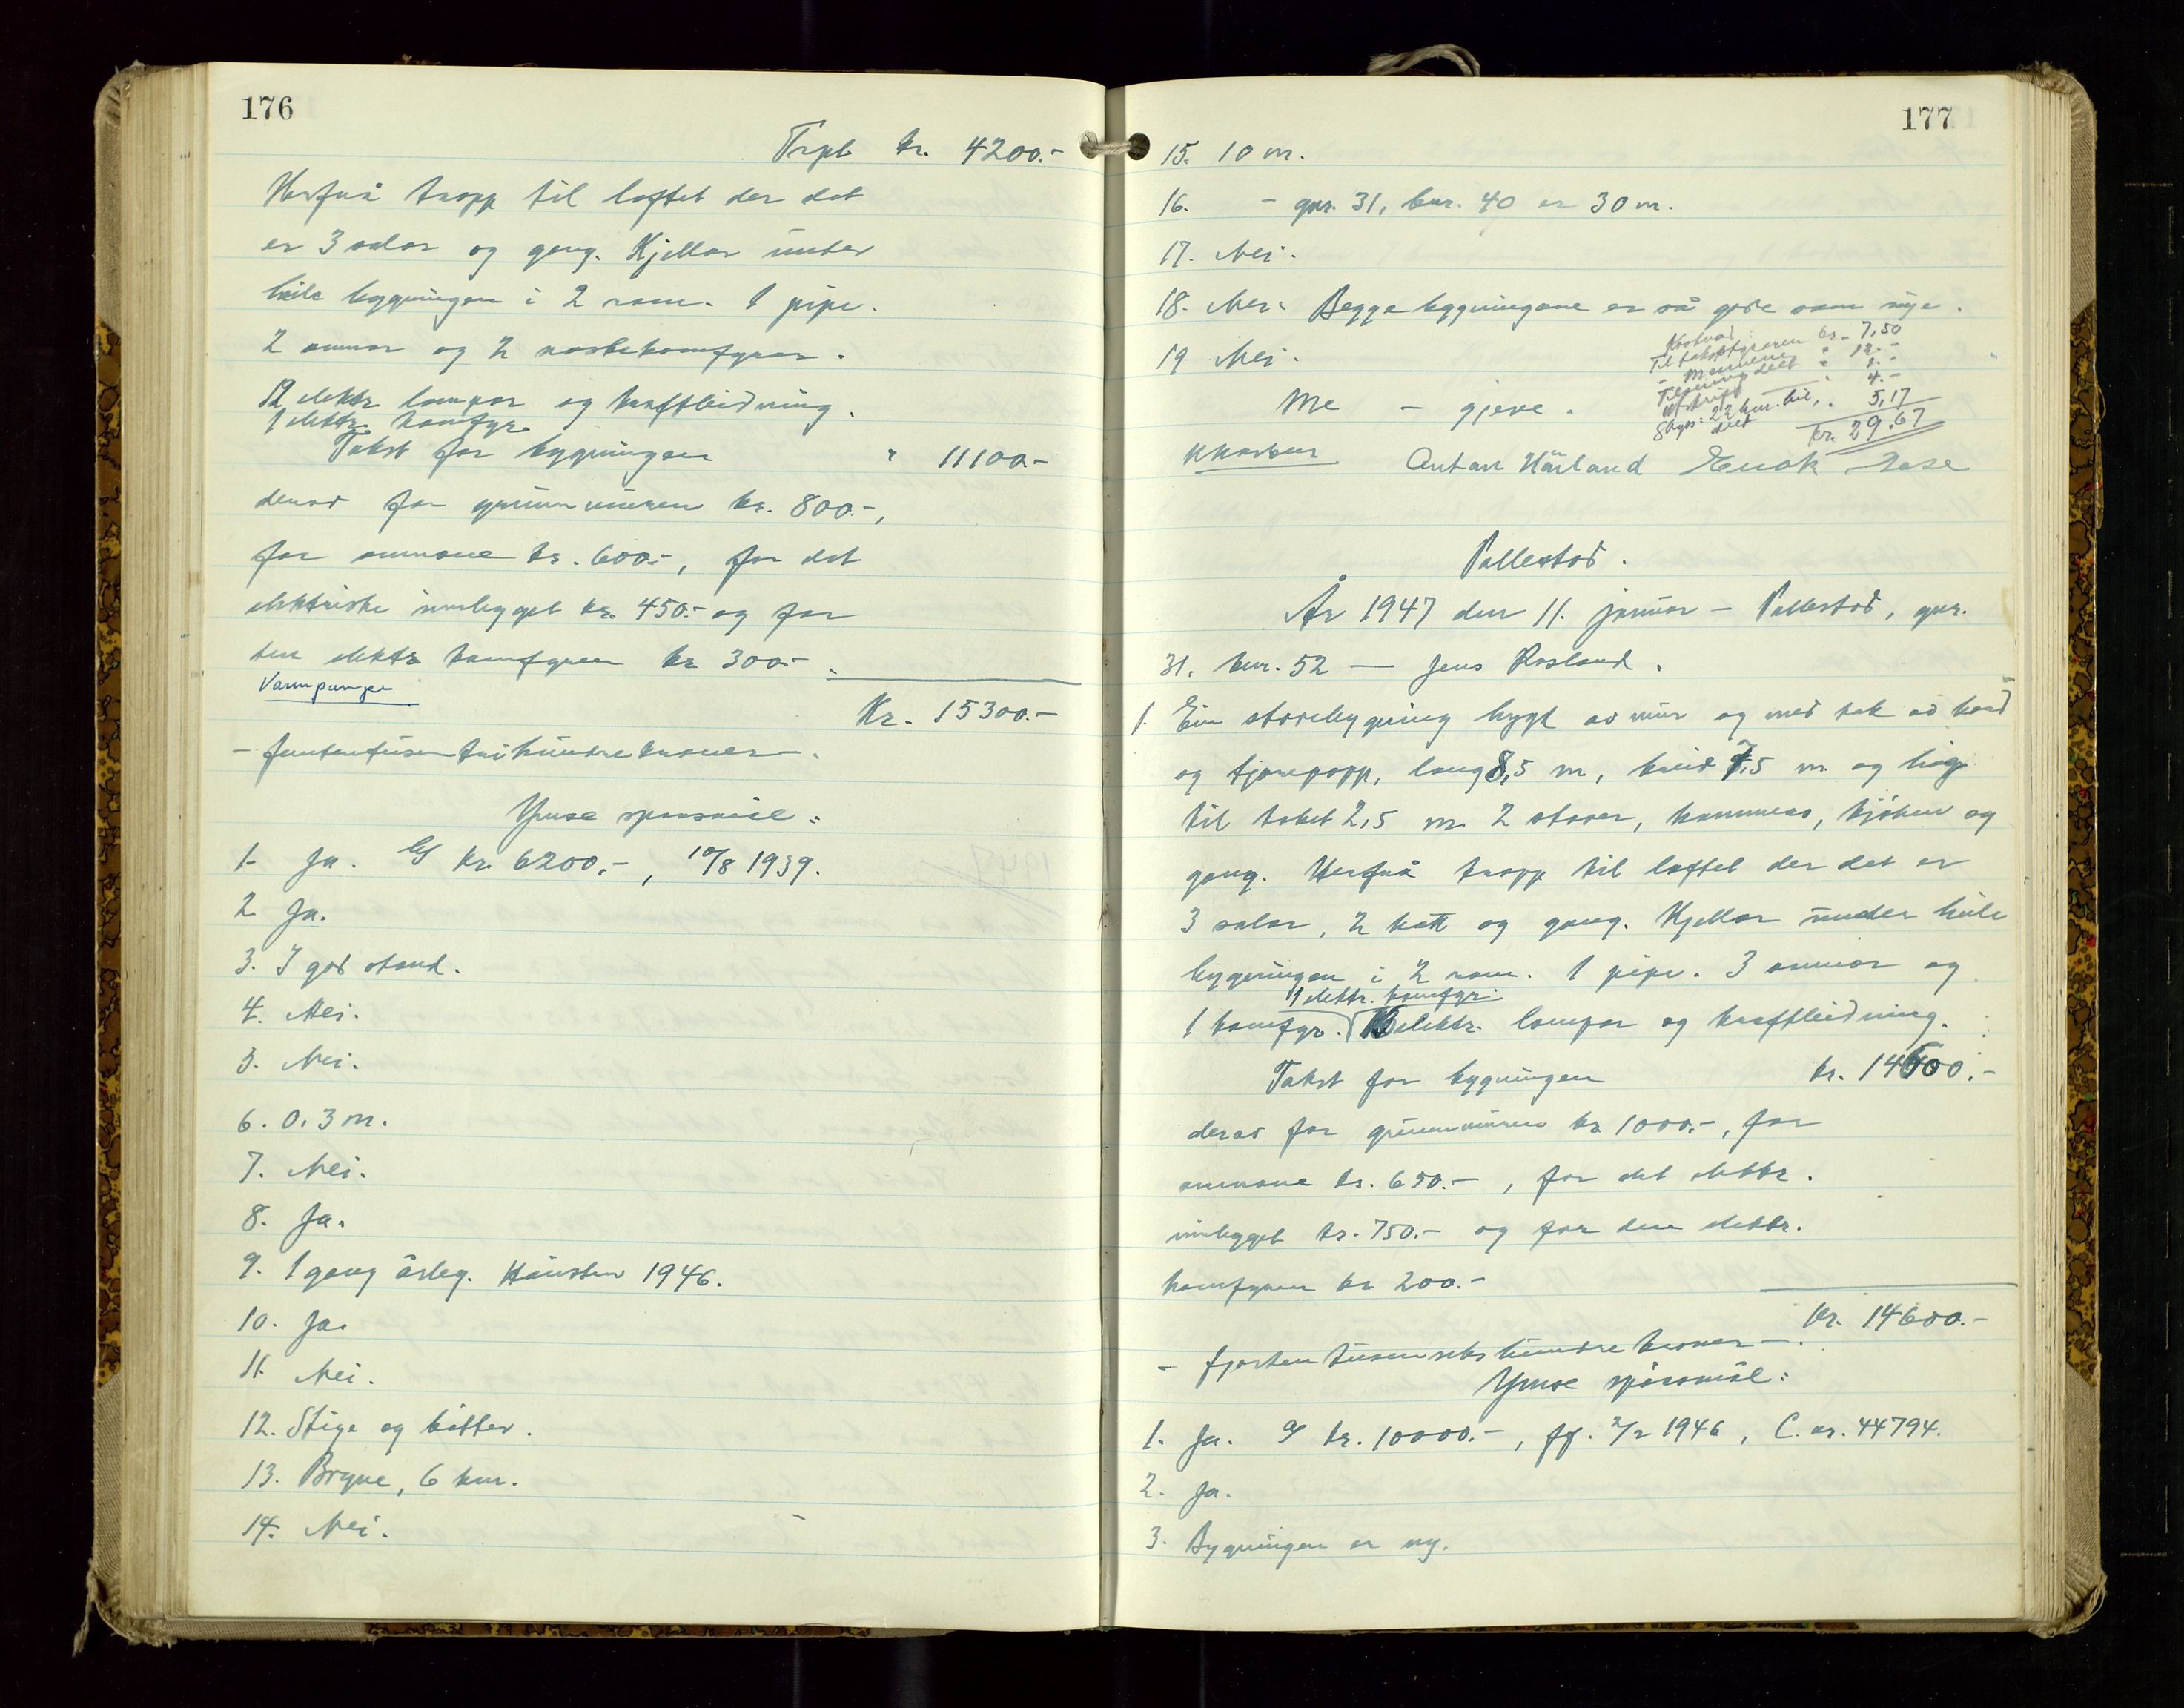 176
Trpt kr. 4200.-
Herfrå trapp til loftet der det
er 3 salar og gang. Kjellar under
heile bygningen i 2 rom. 1 pipe.
2 omnar og 2 vaskekomfyrar.
12 elektr. lampar og kraftleidning.
1 elektr. komfyr.
Takst for bygningen " 11100.-
derav for grunnmuren kr. 800.-,
for omnane kr. 600.-, for det
elektriske innlegget kr. 450.- og for
den elektr. komfyren kr 300.-.
Vannpumpe
Kr. 15300.-
- femtentusentrihundrekroner -.
Ymse spørsmål:
1. Ja. kr. 6200.-, 10/8 1939.
2. Ja.
3. I god stand.
4. Nei.
5. Nei.
6. 0.3 m.
7. Nei.
8. Ja.
9. 1 gang årleg. Hausten 1946.
10. Ja.
11. Nei.
12. Stige og bøtter.
13. Bryne, 6 km.
14. Nei.
177
15. 10 m.
16. - gnr. 31, bnr. 40 er 30 m.
17. Nei.
18. Nei. Begge bygningane er så gode som nye.
19 Nei.
Kostnad:
Til takstстyraren kr. 7,50
- mennene " 12.-
delt " 1.-
Utskrift " 4.-
Skyss: 22 km. bil, " 5,17
delt
kr. 29.67
Me - gjeve.
Anton Håland Enok Aase
Pallestad.
År 1947 den 11. januar - Pallestad, gnr.
31, bnr. 52 — Jens Rosland.
1. Ein stovebygning bygt av mur og med tak av bord
og tjørepapp, lang 8,5 m, breid 7,5 m og høg
til taket 2,5 m. 2 stover, kammers, kjøken og
gang. Herfrå trapp til loftet der det er
3 salar, 2 kott og gang. Kjellar under heile
bygningen i 2 rom. 1 pipe. 3 omnar og
1 elektr. komfyr.
1 komfyr. 13 elektr. lampar og kraftleidning.
Takst for bygningen kr. 14600.-
derav for grunnmuren kr 1000.-, for
omnane kr. 650.-, for det elektr.
innlegget kr. 750.- og for den elektr.
komfyren kr 200.-
Kr. 14600.-
- fjorten tusen seks hundre kroner -.
Ymse spørsmål:
1. Ja. kr. 10000.-, ff. 2/2 1946, C. nr. 44794.
2. Ja.
3. Bygningen er ny.